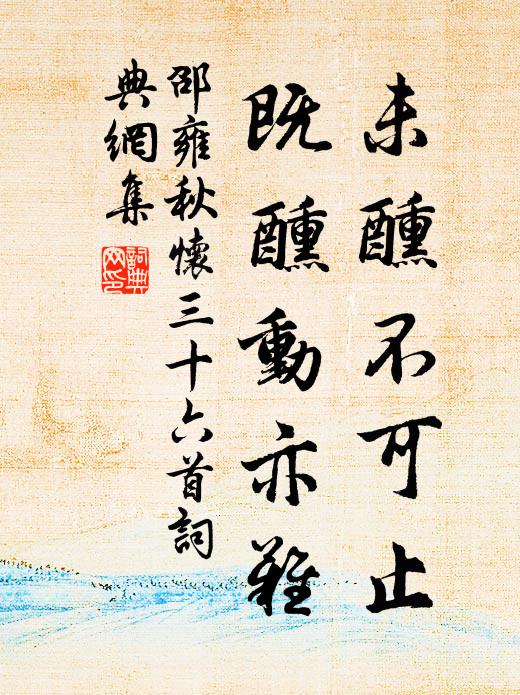 未醺不可止
既醺動亦難
邵雍秋懷三十六首詞
典網集
詞典
网印